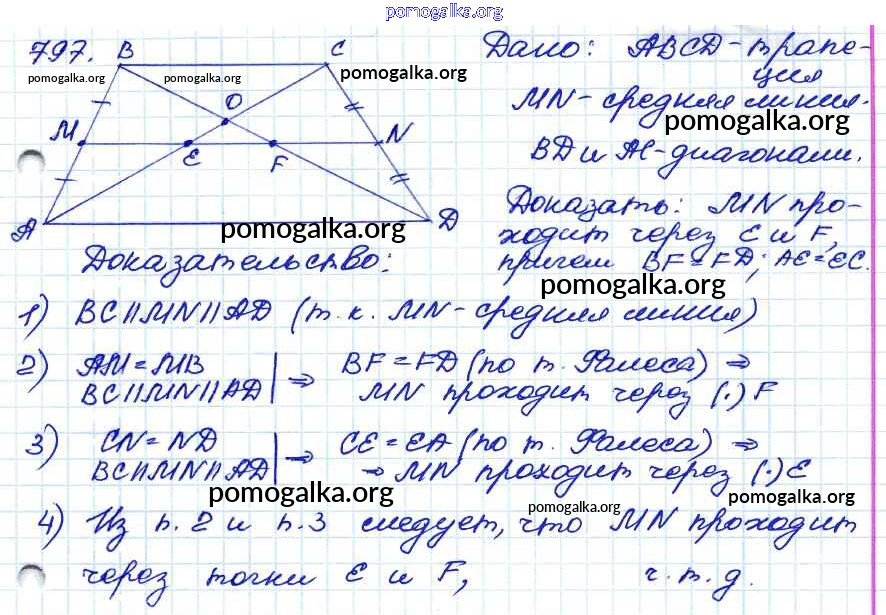 pomogalka.org
797.
B
C
Дано: ABCD - трапе-
ция
pomogalka.org
pomogalka.org
pomogalka.org
O
MN - средняя линия.
pomogalka.org
M
N
E
F
BD и AC - диагонали.
A
D
pomogalka.org
Доказать: MN про-
ходит через E и F,
Доказательство:
причем BF = FD; AE = EC.
pomogalka.org
1) BC || MN || AD (т. к. MN - средняя линия)
2) AM = MB
BC || MN || AD | ⇒ BF = FD (по т. Фалеса) ⇒
MN проходит через (·) F
3) CN = ND
BC || MN || AD | ⇒ CE = EA (по т. Фалеса) ⇒
⇒ MN проходит через (·) E
pomogalka.org
pomogalka.org
pomogalka.org
4) Из п. 2 и п. 3 следует, что MN проходит
через точки E и F, ч. т. д.